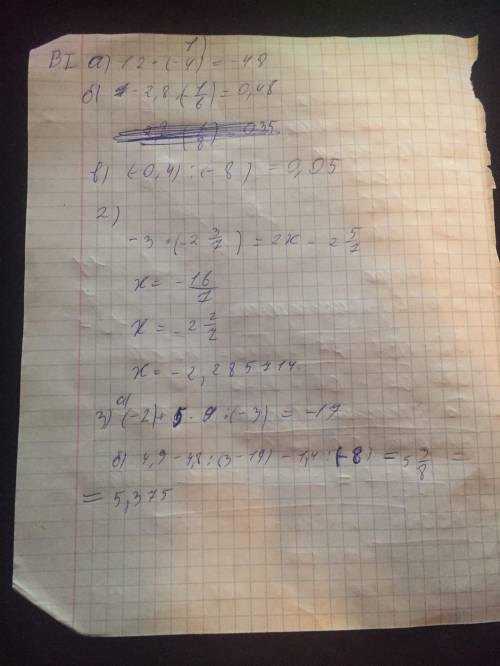 1)
ВI а) 12 · (-4) = -48
б) -2,8 · (1/6) = 0,48
в) (-0,4) : (-8) = 0,05
2)
-3 · (-2 3/7) = 2x - 2 5/7
x = -16/7
x = -2 2/7
x = -2,285714
3) а) (-2) + 5 · 9 : (-3) = -17
б) 4,9 - 4,8 : (3 - 19) - 1,4 : (-8) = 5 3/8 =
= 5,375